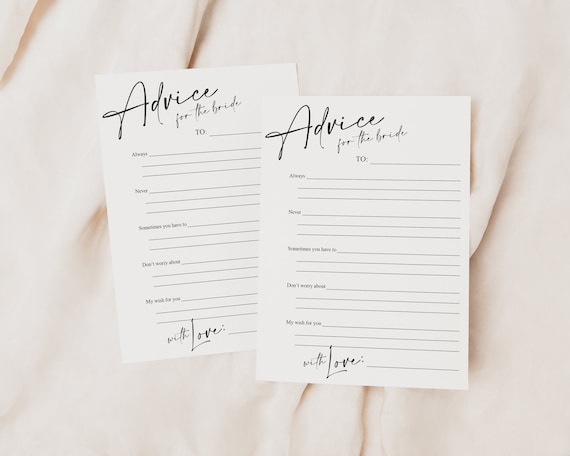 Advice
for the bride
TO:
Always
Never
Sometimes you have to
Don't worry about
My wish for you
with Love:
Advice
for the bride
TO:
Always
Never
Sometimes you have to
Don't worry about
My wish for you
with Love: